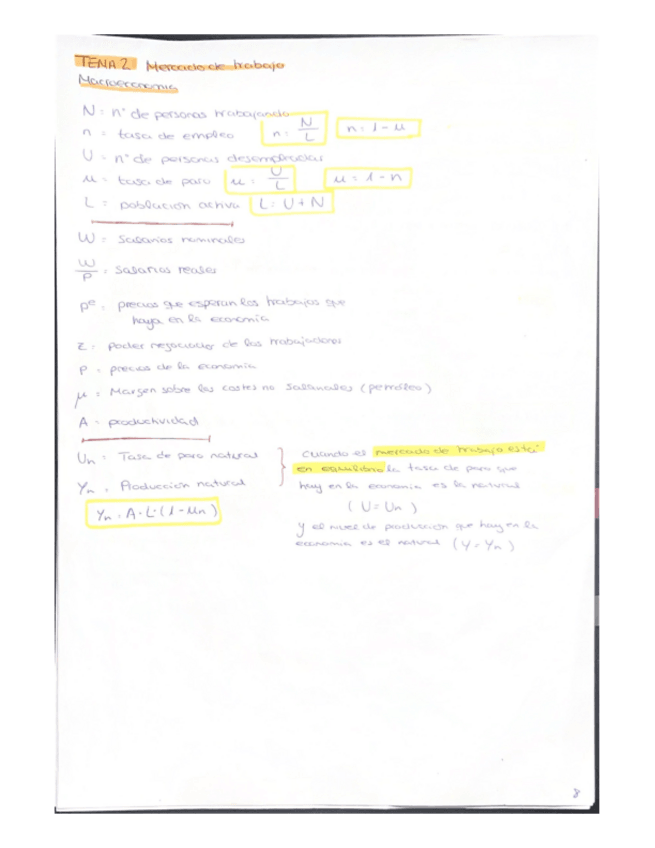 TEMA 2 Mercado de trabajo
Macroeconomia
N = nº de personas trabajando
n = tasa de empleo n = N/L n = 1 - u
U = nº de personas desempleadas
u = tasa de paro u = U/L u = 1 - n
L = población activa L = U + N
W = Salarios nominales
W/P = Salarios reales
Pe = precios que esperan los trabajos que
haya en la economía
Z = poder negociador de los trabajadores
P = precios de la economia
μ = Margen sobre los costes no salariales (petróleo)
A = productividad
Un = Tasa de paro natural
Yn = Producción natural
Yn = A · L · (1 - un)
Cuando el mercado de trabajo está
en equilibrio la tasa de paro que
hay en la economia es la natural
(U = Un)
y el nivel de producción que hay en la
economia es el natural (Y = Yn)
8